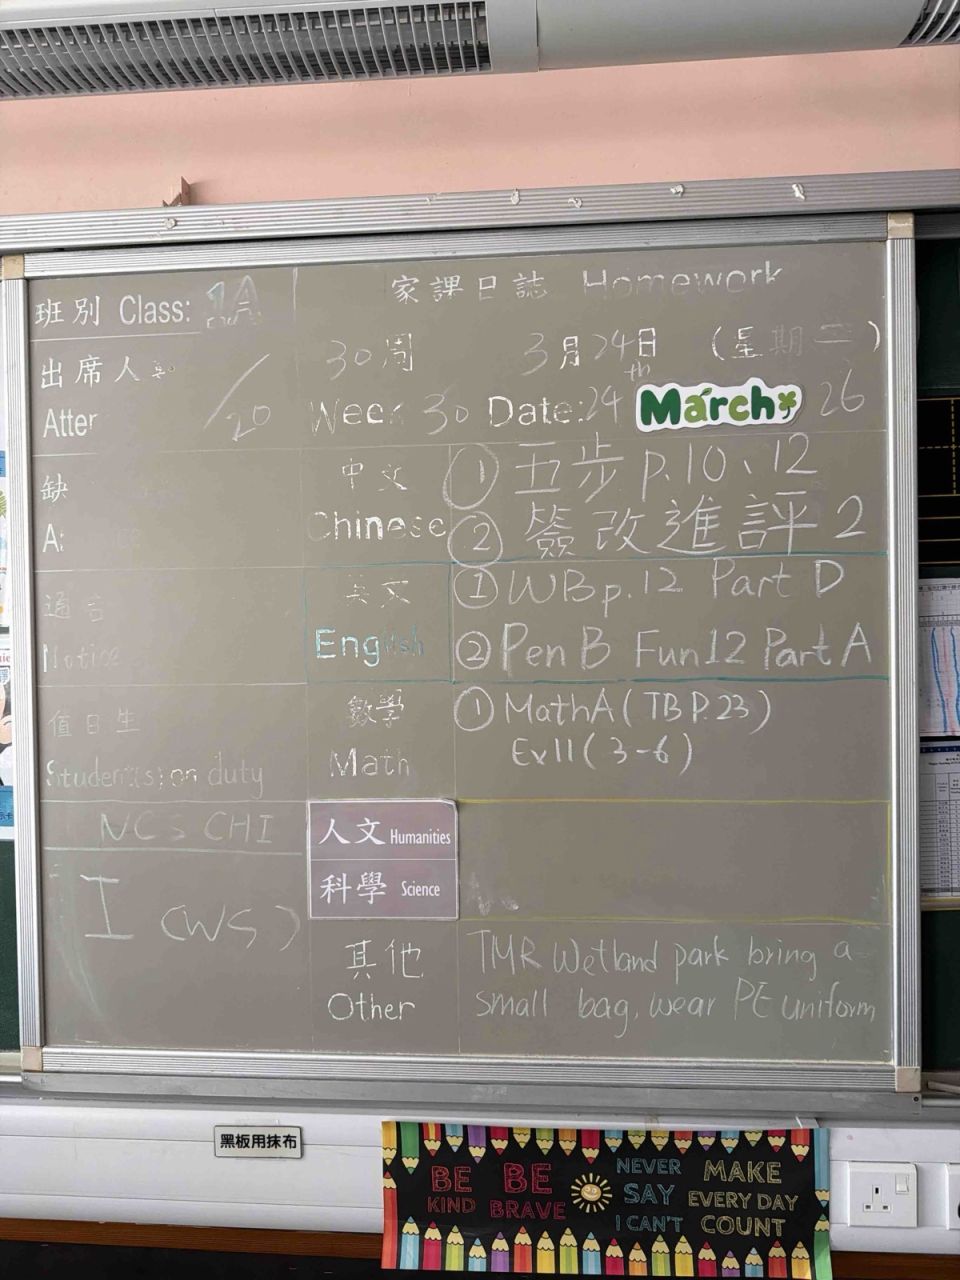 家課日誌 Homework
班別 Class: 1A
30周 3月24日 (星期二)
出席人
/20
Week 30 Date: 24th March 26
Atter
中文
Chinese
① 五步 p.10、12
② 簽改進評2
缺
A
英文
English
① WB p.12 Part D
② Pen B Fun12 Part A
通告
Notice
數學
Math
① MathA (TB P.23)
Ex11 (3-6)
值日生
Student(s) on duty
NC > CHI
I (WS)
人文 Humanities
科學 Science
其他
Other
TMR Wetland park bring a
small bag, wear PE uniform
黑板用抹布
BE KIND
BE BRAVE
NEVER SAY I CAN'T
MAKE EVERY DAY COUNT